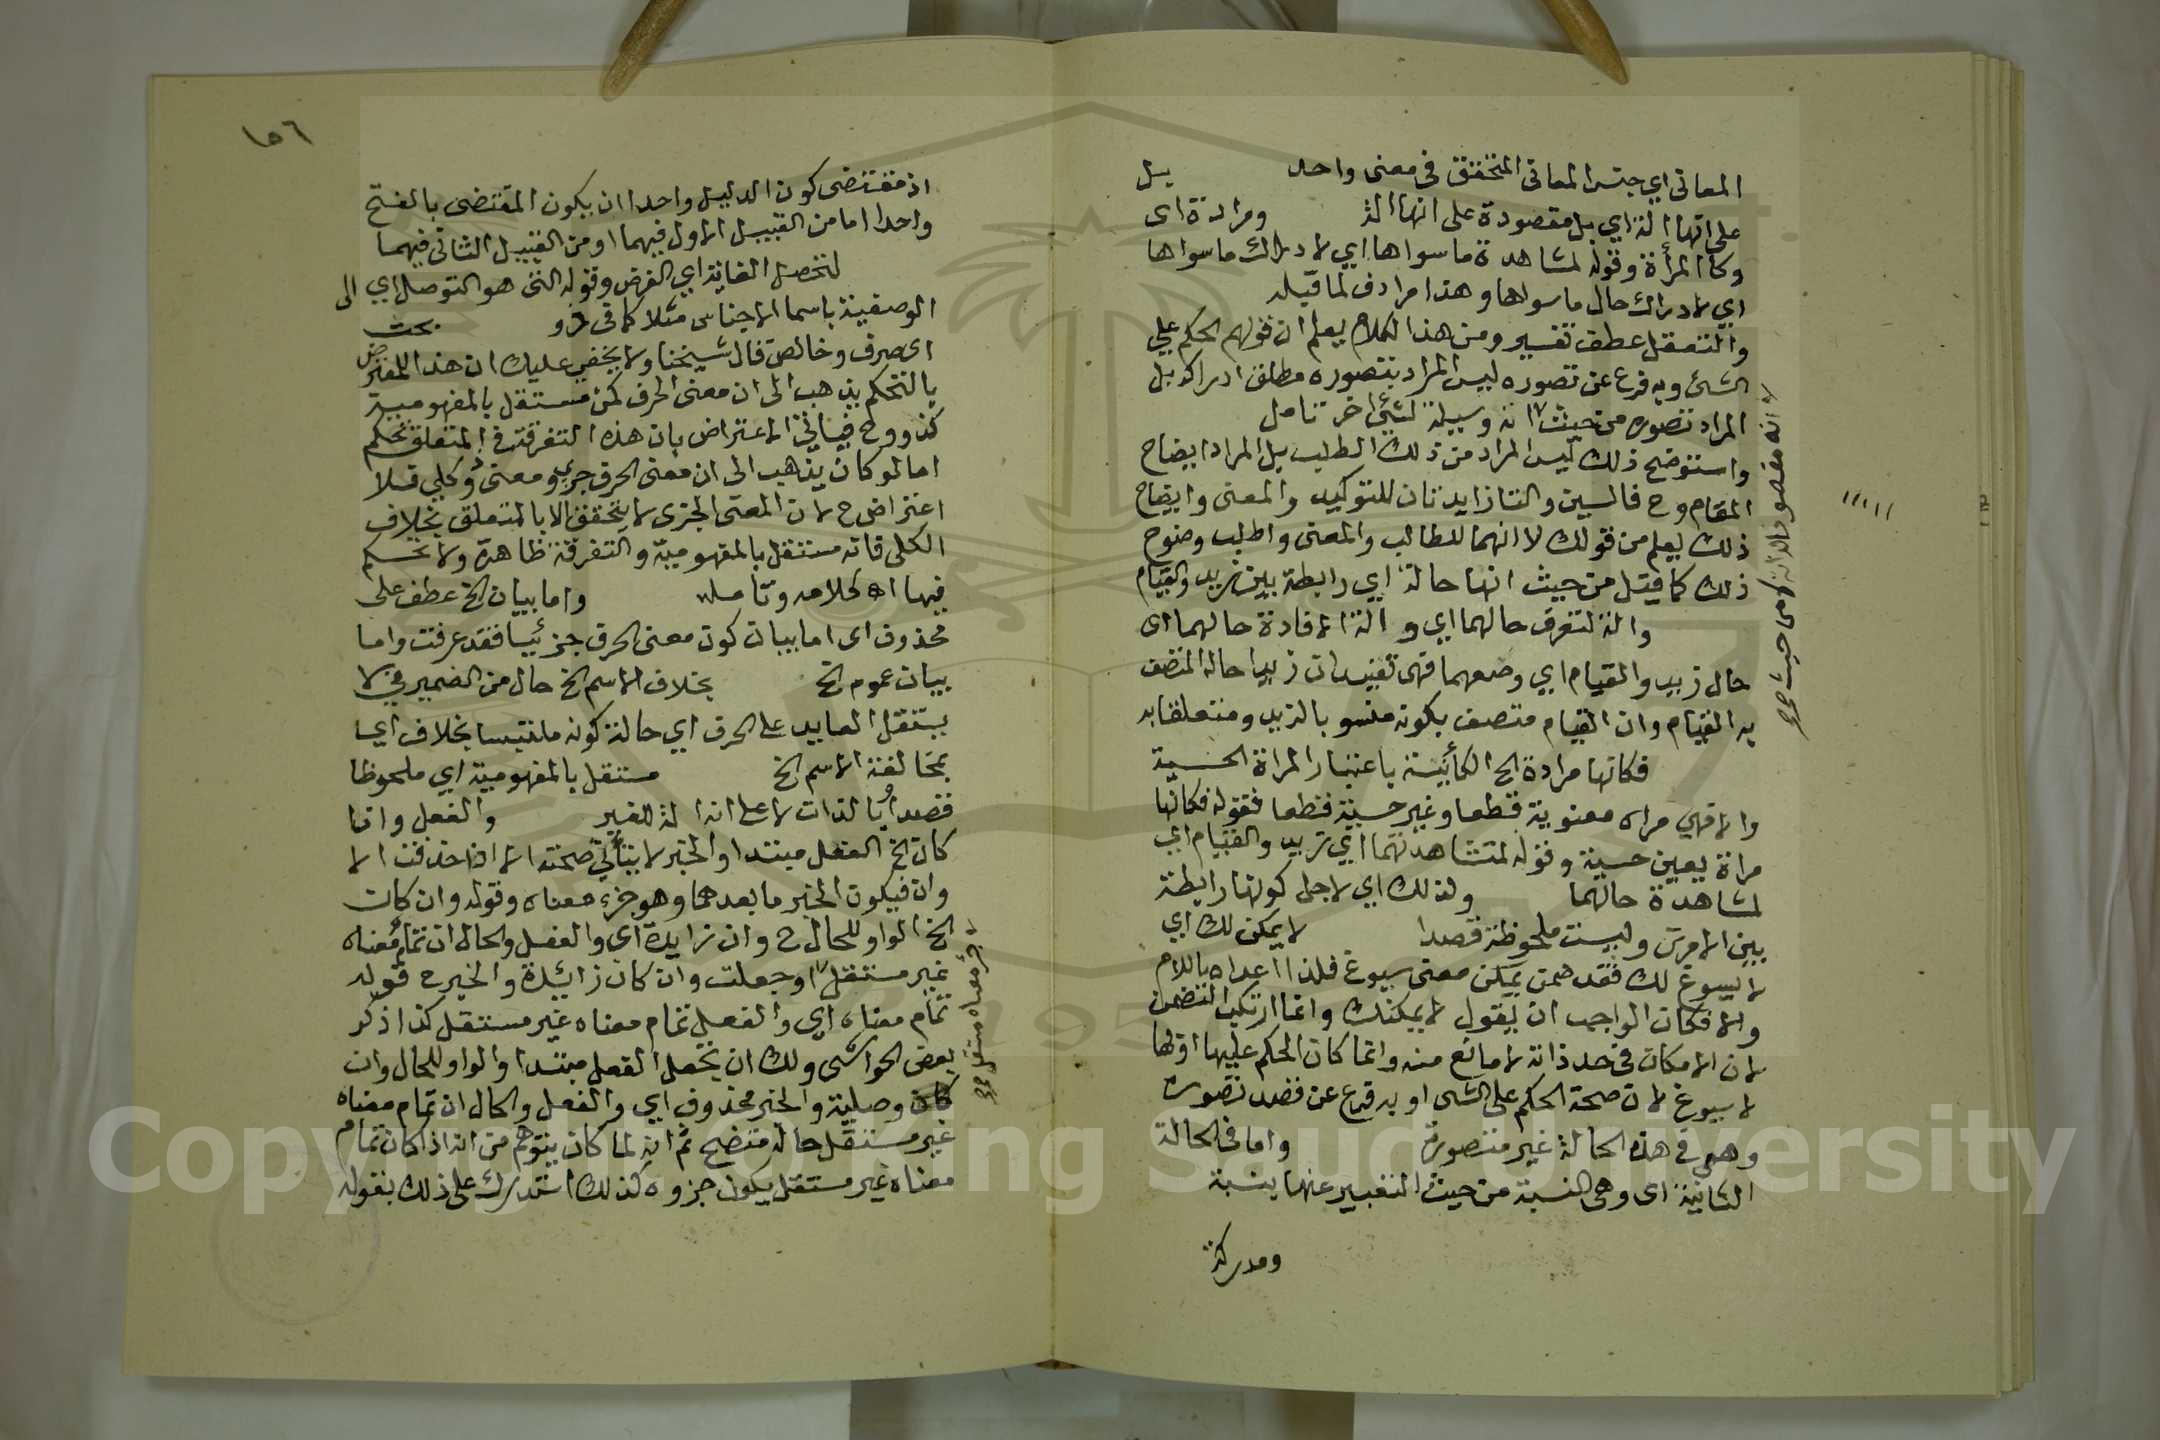 المعاني اي جنس المعاني المتحقق في معنى واحد بل
على انها الة اي بل مقصودة على انها الة ومرادة اى
وكالمرأة وقوله لمشاهدة ما سواها اي لادراك ما سواها
اي لادراك حال ما سواها وهذا مرادف لما قبله
والتعقل عطف تفسير ومن هذا الكلام يعلم ان قولهم الحكم علي
الشئ وبه فرع عن تصوره ليس المراد بتصوره مطلق ادراكه بل
المراد تصوره من حيث انه وسيلة لشئ اخر تامل
واستوضح ذلك ليس المراد من ذلك الطلب بل المراد ايضاح
المقام وح فالسين والتا زايدتان للتوكيد والمعنى وايضاح
ذلك يعلم من قولك لا انهما للطالب والمعنى واطلب وضوح
ذلك كما قيل من حيث انها حالة اي رابطة بين زيد والقيام
والة لتعرف حالهما اي و الة لافادة حالهما اى
حال زيد والقيام اي وصفهما فهى تفيد ان زيدا حاله المتصف
به القيام وان القيام متصف بكونه منسوبا لزيد ومتعلقا به
فكانها مرادة الخ الكائنة باعتبار المراة الحسية
والا فهي مراه معنوية قطعا وغير حسية قطعا فقوله فكانها
مراة يعني حسية وقوله لمشاهدتهما اي زيد والقيام اي
لمشاهدة حالهما ولذلك اي لاجل كونها رابطة
بين الامرين وليست ملحوظة قصدا لا يمكن لك اي
لا يسوغ لك فقد ضمن يمكن معنى يسوغ فلذا اعداه باللام
والا فكان الواجب ان يقول لا يمكنك وانما ارتكب التضمن
لان الامكان في حد ذاته لا مانع منه وانما كان الحكم عليها اوبها
لا يسوغ لان صحة الحكم على الشى او به فرع عن قصد تصوره
وهى في هذه الحالة غير متصورة واما في الحالة
الثانية اى وهى النسبة من حيث التعبير عنها بنسبة
ومدركة
لا انه مقصود لذاته لا من حيث صح
١٥٦
اذ مقتضى كون الدليل واحدا ان يكون المقتضى بالفتح
واحدا اما من القبيل الاول فيهما او من القبيل الثاني فيهما
لتحصل الغاية اي الغرض وقوله التى هو التوصل اي الى
الوصفية باسما الاجناس مثلا كما في ذو بحت
اى صرف وخالص قال شيخنا ولا يخفى عليك ان هذا المعترض
بالتحكم يذهب الى ان معنى الحرف كمن مستقل بالمفهومية
كذو وح فيأتي الاعتراض بان هذه التفرقة في المتعلق تحكم
اما لو كان يذهب الى ان معنى الحرف جزيى ومعنى ذو كلي فلا
اعتراض ح لان المعنى الجزى لا يتحقق الا بالمتعلق بخلاف
الكلى فانه مستقل بالمفهومية والتفرقة ظاهرة ولا تحكم
فيها اه كلامه وتامله واما بيان الخ عطف على
محذوف اى اما بيان كون معنى الحرف جزئيا فقد عرفت واما
بيان عموم الخ بخلاف الاسم الخ حال من الضمير في لا
يستقل العايد على الحرف اي حالة كونه ملتبسا بخلاف اي
بمخالفة الاسم الخ مستقل بالمفهومية اي ملحوظا
قصدا وبالذات لا على انه الة للغير والفعل وان
كان الخ الفعل مبتدا والخبر لا يتأتى صحته الا اذا حذفت الا
وان فيكون الخبر ما بعدهما وهو جزء معناه وقوله وان كان
الخ الواو للحال ح وان زايدة اى والفعل والحال ان تمام معناه
غير مستقل او جعلت وان كان زائدة والخبر ح قوله
تمام معناه اي والفعل تمام معناه غير مستقل كذا ذكر
بعض الحواشى ولك ان تجعل الفعل مبتدا والواو للحال وان
كان وصلية والخبر محذوف اي والفعل والحال ان تمام معناه
غير مستقل حاله متضح ثم انه لما كان يتوهم من انه اذا كان تمام
معناه غير مستقل يكون جزوه كذلك استدرك على ذلك بقوله
جزء معناه مستقل صح
Copyright © King Saud University